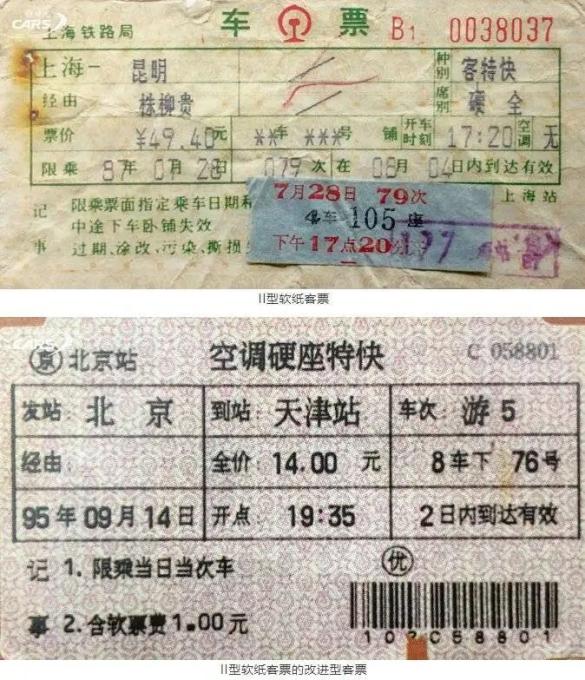 CARS
上海铁路局 车 票 B1 0038037
上海— 昆明 种别 客特快
经由 株柳贵 席别 硬 全
票价 ¥49.40元 **车 ***号 铺 开车时刻 17:20 空调 无
限乘 87年 07月 28日 079次 在 08月 04日内到达有效
记 限乘票面指定乘车日期和 上海站
中途下车卧铺失效
事 过期、涂改、污染、撕损
7月28日 79次
105 座
下午17点20分
II型软纸客票
京 北京站 空调硬座特快 C 058801
发站: 北 京 到站: 天津站 车次: 游5
经由: 全价: 14.00 元 8车下 76号
95年 09月 14日 开点: 19:35 2日内到达有效
记 1. 限乘当日当次车 优
事 2. 含软票费1.00元
102058801
II型软纸客票的改进型客票